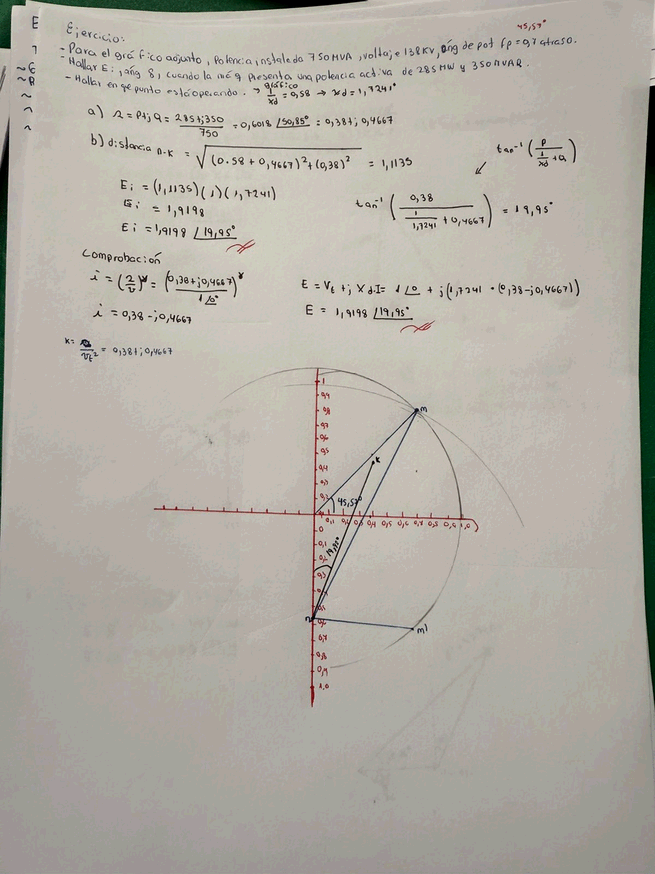 Ejercicio:
45,57°
- Para el gráfico adjunto, Potencia instalada 750MVA, voltaje 138KV, áng de pot fp=0,7 atraso.
- Hallar Ei, ang δ, cuando la máq presenta una potencia activa de 285MW y 350MVAR.
- Hallar en qe punto está operando. → gráfico 1/xd = 0,58 → xd = 1,7241
a) s = P+jQ = 285+j350/750 = 0,6018 /50,85° = 0,38+j0,4667
b) distancia n-k = √((0.58 + 0,4667)² + (0,38)²) = 1,1135
tan⁻¹ (P / (1/xd + Q))
Ei = (1,1135)(1)(1,7241)
Ei = 1,9198
Ei = 1,9198 /19,95°
tan⁻¹ (0,38 / (1/1,7241 + 0,4667)) = 19,95°
Comprobación
i = (s/v)* = ((0,38+j0,4667)/1/0°)*
i = 0,38-j0,4667
E = Vt + j Xd.I = 1/0 + j(1,7241 * (0,38-j0,4667))
E = 1,9198 /19,95°
k= /Vt² = 0,38+j0,4667
1
0,9
0,8
0,7
0,6
0,5
0,4
0,3
0,2
m
k
45,57°
0,1 0,2 0,3 0,4 0,5 0,6 0,7 0,8 0,9 1,0
0
0,1
19,95°
0,3
n
0,6
m'
0,7
0,8
0,9
1,0